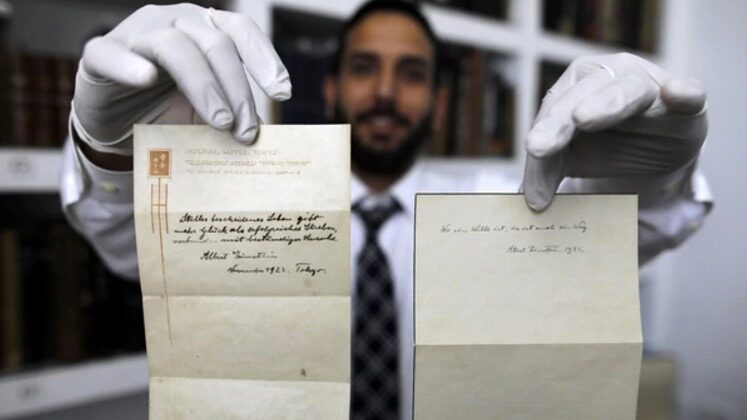 IMPERIAL HOTEL TOKYO
TELEGRAPHIC ADDRESS TOKYO
Stilles bescheidenes Leben gibt
mehr Glück als erfolgreiches Streben,
verbunden mit beständiger Unruhe.
Albert Einstein
November 1922. Tokyo.
Wo ein Wille ist, da ist auch ein Weg.
Albert Einstein. 1922.